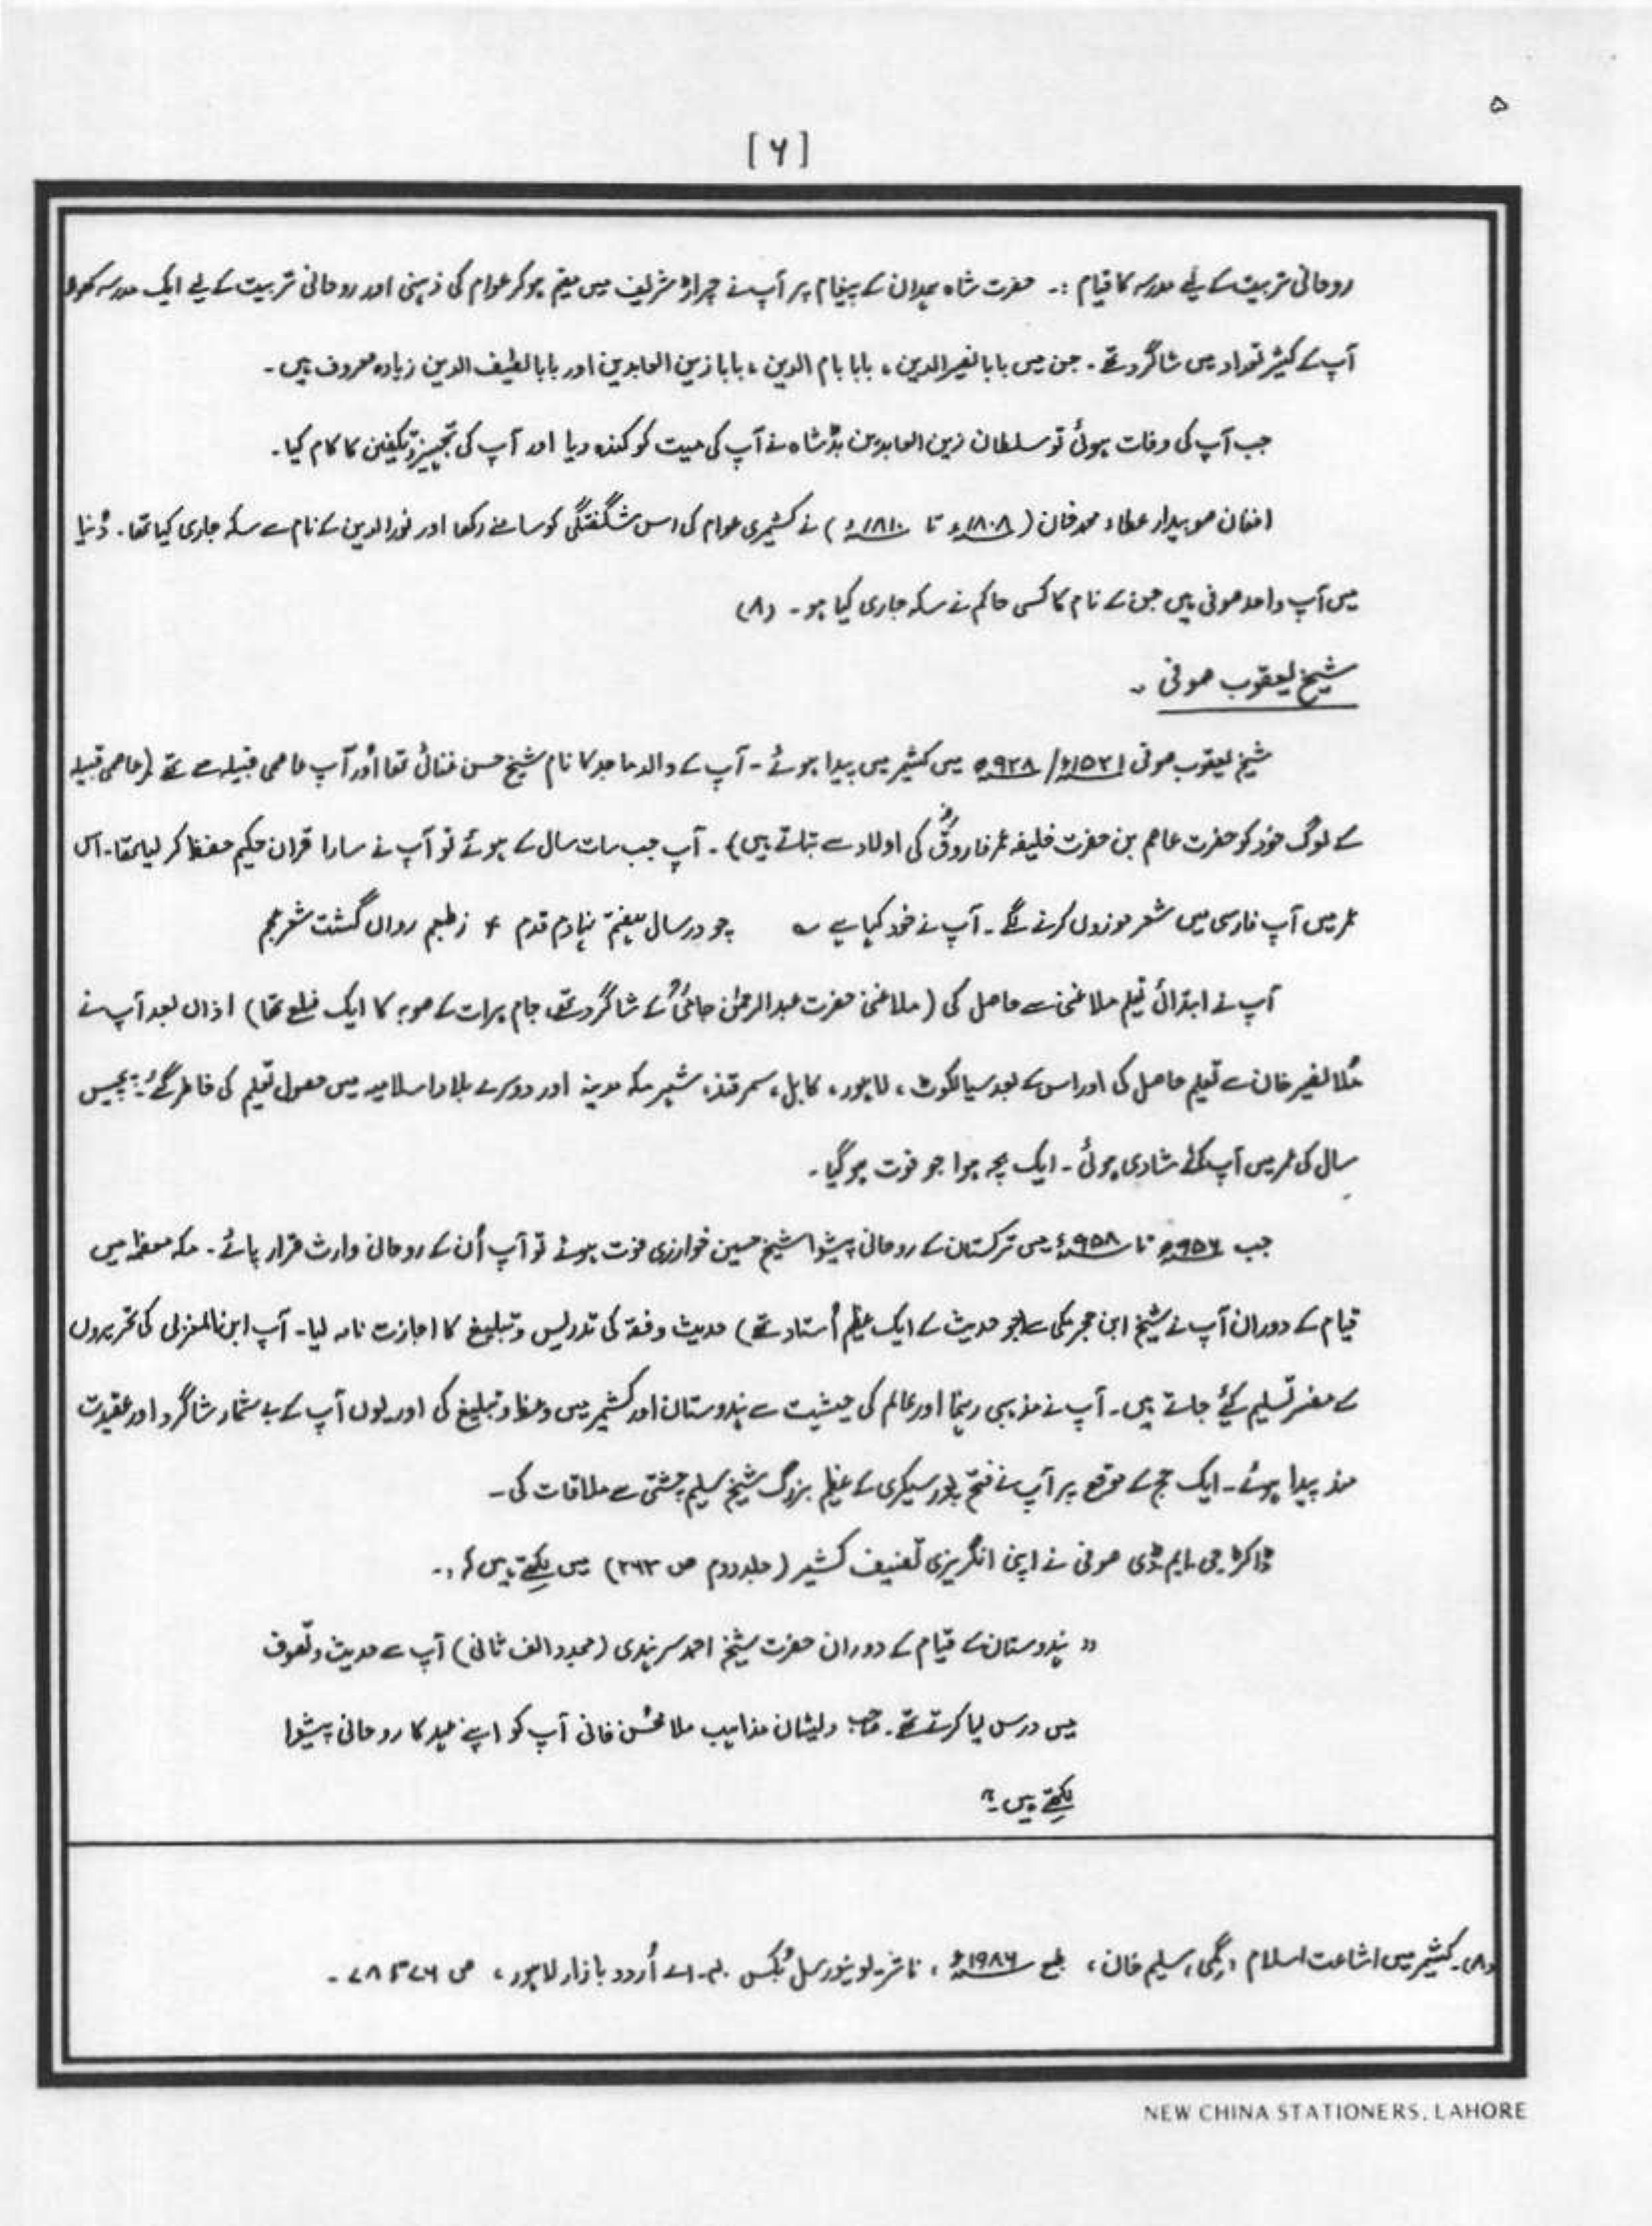 ۵
[۶]
روحانی تربیت کے لیے مدرسہ کا قیام :۔ حضرت شاہ ہمدان کے پیغام پر آپ نے چرار شریف میں مقیم ہو کر عوام کی ذہنی اور روحانی تربیت کے لیے ایک مدرسہ کھولا
آپ کے کثیر تعداد میں شاگرد تھے۔ جن میں بابا نصیر الدین، بابا بام الدین، بابا زین العابدین اور بابا لطیف الدین زیادہ معروف ہیں۔
جب آپ کی وفات ہوئی تو سلطان زین العابدین بڈشاہ نے آپ کی میت کو کندہ دیا اور آپ کی تجہیز و تکفین کا کام کیا۔
افغان صوبیدار عطاء محمد خان (۱۸۰۸ء تا ۱۸۱۰ء) نے کشمیری عوام کی اس شگفتگی کو سامنے رکھا اور نور الدین کے نام سے سکہ جاری کیا تھا۔ دُنیا
میں آپ واحد صوفی ہیں جن کے نام کا کسی حاکم نے سکہ جاری کیا ہو۔ (۸)
شیخ یعقوب صوفی ۔
شیخ یعقوب صوفی ۱۵۲۱ء/۹۲۸ھ میں کشمیر میں پیدا ہوئے۔ آپ کے والد ماجد کا نام شیخ حسن غنائی تھا اور آپ عاصمی قبیلہ سے تھے (عاصمی قبیلہ
کے لوگ خود کو حضرت عاصم بن حضرت خلیفہ عمر فاروقؓ کی اولاد سے بتاتے ہیں)۔ آپ جب سات سال کے ہوئے تو آپ نے سارا قران حکیم حفظ کر لیا تھا۔ اس
عمر میں آپ فارسی میں شعر موزوں کرنے لگے۔ آپ نے خود کہا ہے ؎ چو در سال ہفتم نہادم قدم + ز طبعم رواں گشت شعر عجم
آپ نے ابتدائی تعلیم ملا غنی سے حاصل کی (ملا غنی حضرت عبد الرحمٰن جامیؒ کے شاگرد تھے، جام ہرات کے صوبہ کا ایک ضلع تھا) اذاں بعد آپ نے
مُلا نصیر خان سے تعلیم حاصل کی اور اس کے بعد سیالکوٹ، لاہور، کابل، سمر قند، شہر مکہ مدینہ اور دوسرے بلاد اسلامیہ میں حصول تعلیم کی خاطر گئے۔ پچیس
سال کی عمر میں آپ کی شادی ہوئی۔ ایک بچہ ہوا جو فوت ہو گیا۔
جب ۹۵۶ھ تا ۹۵۸ء میں ترکستان کے روحانی پیشوا شیخ حسین خوارزی فوت ہوئے تو آپ اُن کے روحانی وارث قرار پائے۔ مکہ معظمہ میں
قیام کے دوران آپ نے شیخ ابن حجر مکی سے (جو حدیث کے ایک عظیم اُستاد تھے) حدیث و فقہ کی تدریس و تبلیغ کا اجازت نامہ لیا۔ آپ ابن المغزلی کی تحریروں
کے مفسر تسلیم کیئے جاتے ہیں۔ آپ نے مذہبی رہنما اور عالم کی حیثیت سے ہندوستان اور کشمیر میں وعظ و تبلیغ کی اور یوں آپ کے بے شمار شاگرد اور عقیدت
مند پیدا ہوئے۔ ایک حج کے موقع پر آپ نے فتح پور سیکری کے عظیم بزرگ شیخ سلیم چشتی سے ملاقات کی۔
ڈاکٹر جی ایم ڈی صوفی نے اپنی انگریزی تصنیف کشیر (جلد دوم ص ۳۶۳) میں لکھتے ہیں کہ:۔
" ہندوستان کے قیام کے دوران حضرت شیخ احمد سرہندی (مجدد الف ثانی) آپ سے حدیث و تصوف
میں درس لیا کرتے تھے۔ صاحب دلبشان مذاہب ملا محسن فانی آپ کو اپنے عہد کا روحانی پیشوا
لکھتے ہیں۔"
(۸)۔ کشمیر میں اشاعت اسلام، گمی، سلیم خان، طبع ۱۹۸۶ء، ناشر۔ یونیورسل بُکس ۴۰۔اے اُردو بازار لاہور، ص ۷۶ تا ۷۸۔
NEW CHINA STATIONERS, LAHORE